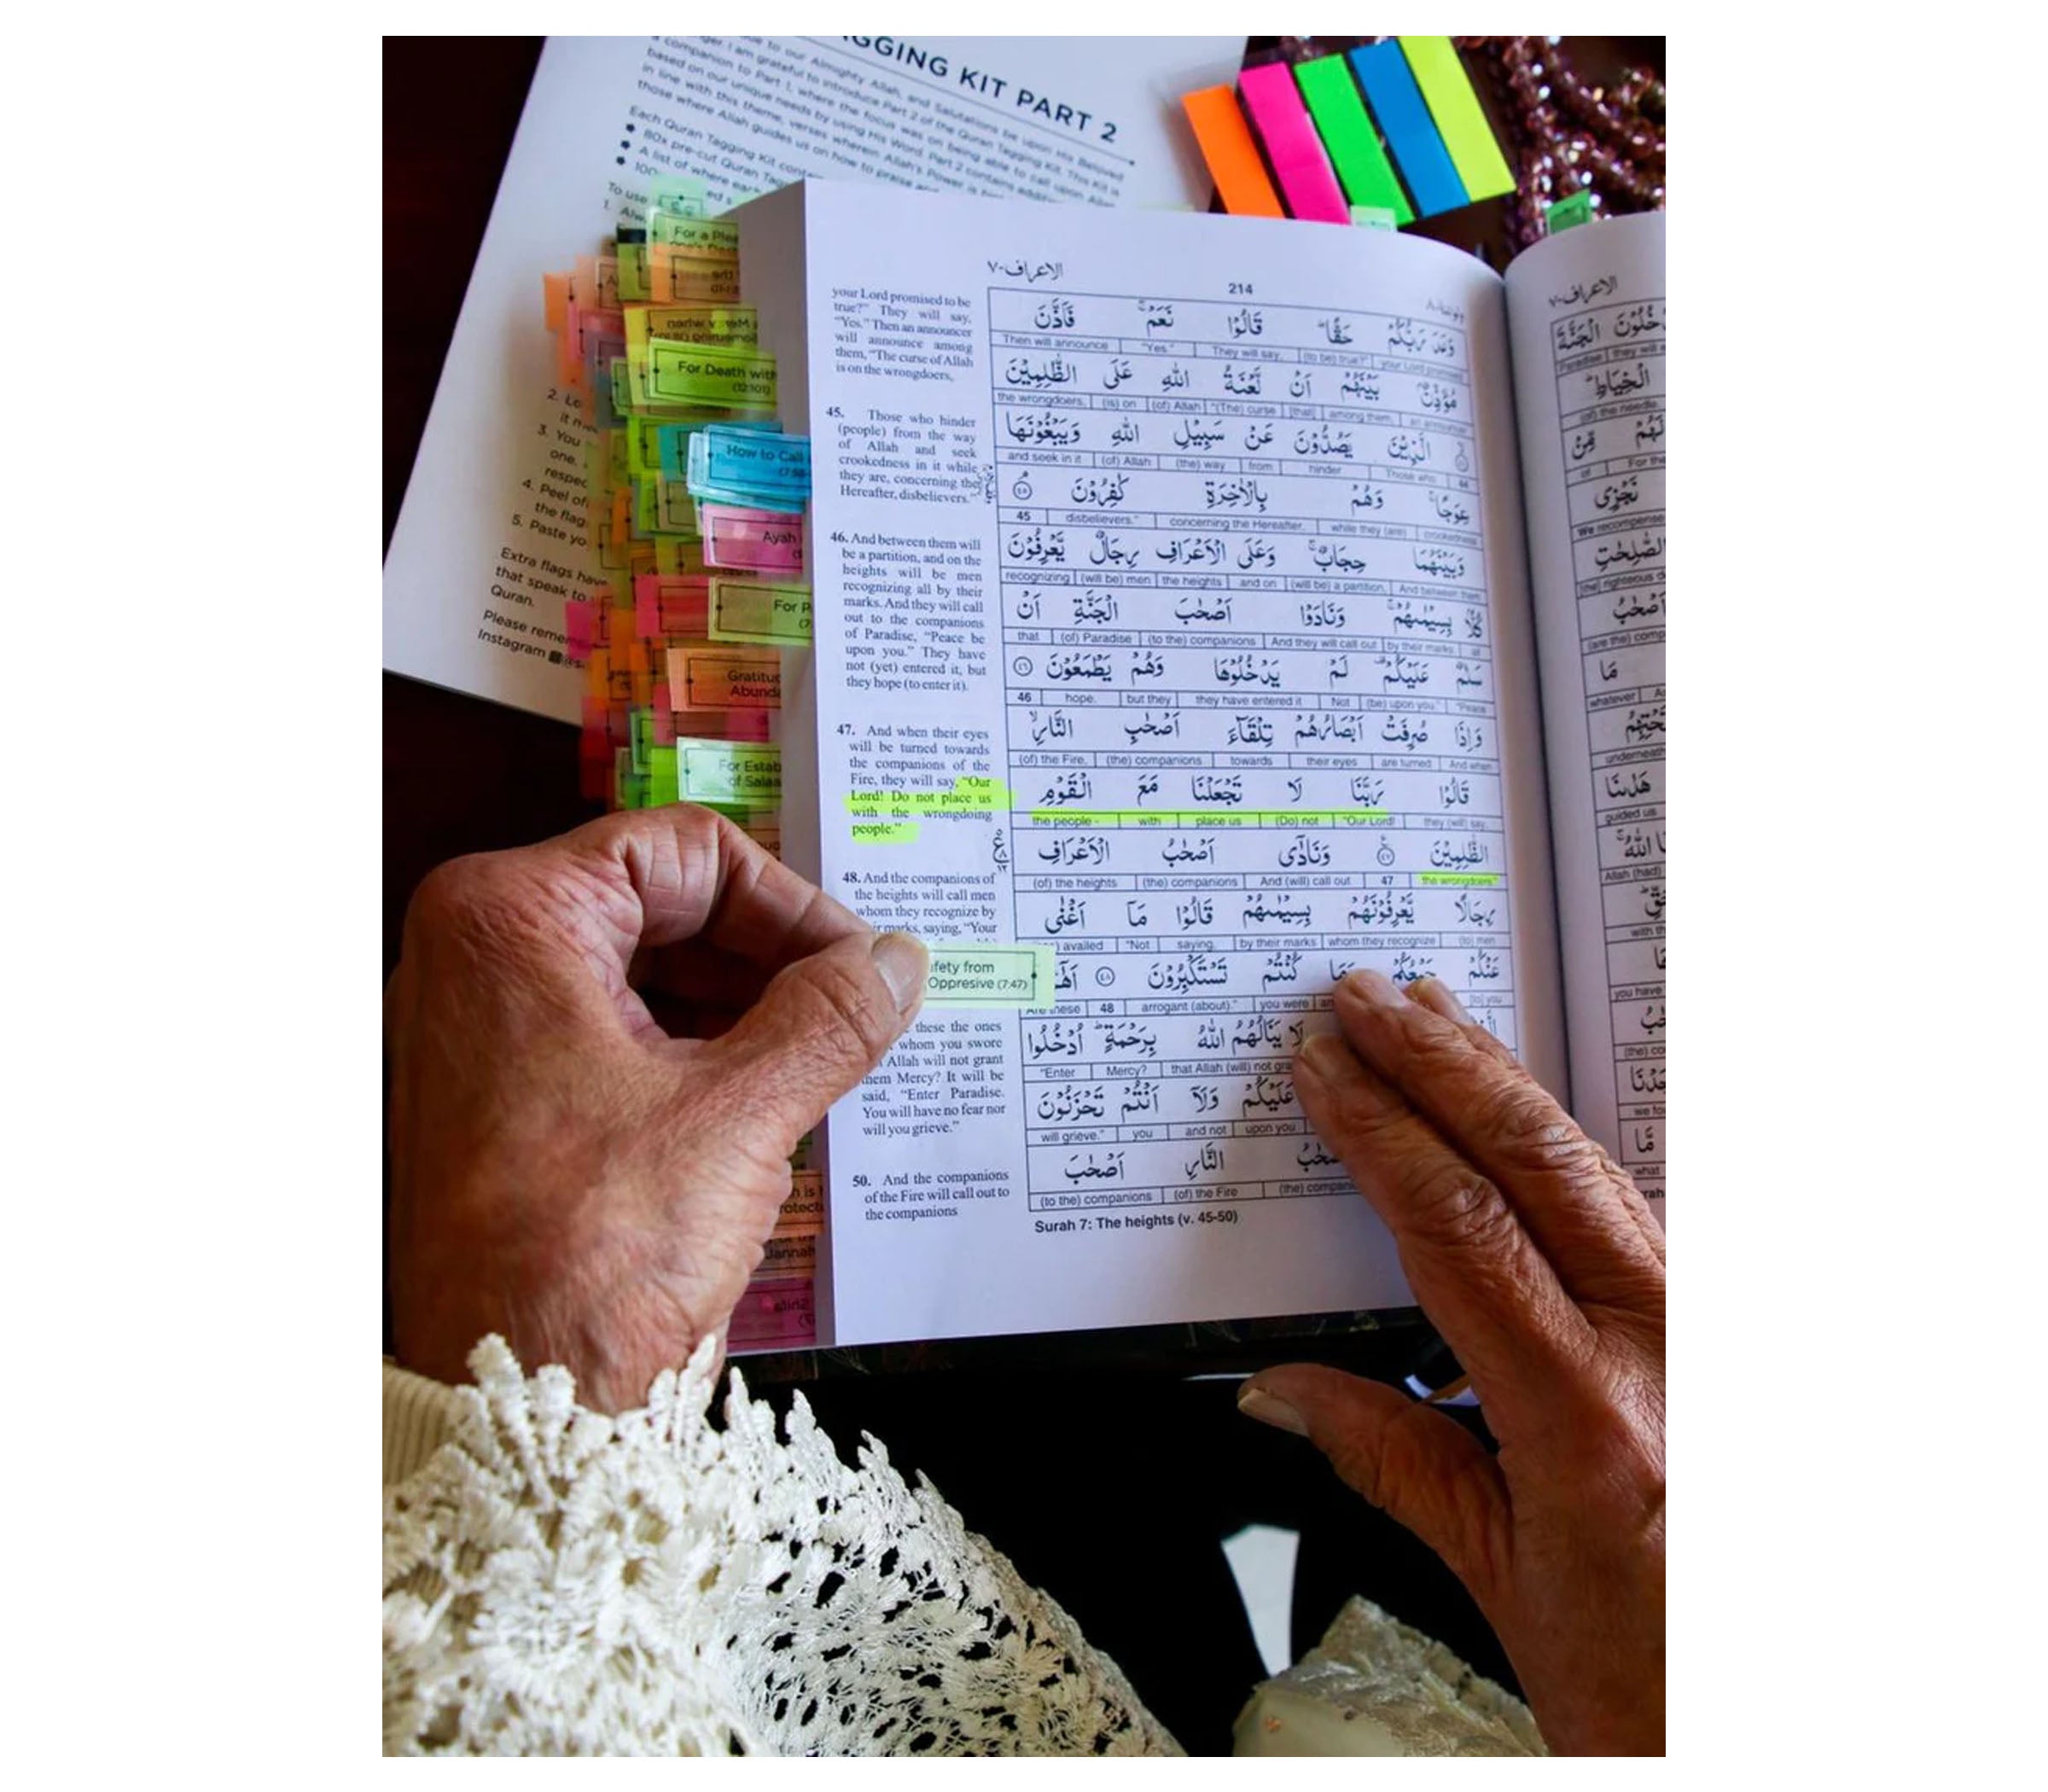 GGING KIT PART 2
ger. I am grateful to introduce Part 2 of the Quran Tagging Kit. This Kit is
a companion to Part 1, where the focus was on being able to call upon Allah
based on our unique needs by using His Word. Part 2 contains
in line with this theme, verses wherein Allah's Power is
those where Allah guides us on how to praise
Each Quran Tagging Kit
80x pre-cut Quran
A list of where
To use
2.
3. You
one,
4. Peel
the flag
5. Paste
Extra flags have
that speak to
Quran.
Please
Instagram
For a
For Death with
(12:101)
How to Call
Ayah
For
Gratitude
For
of Salaa
الاعراف-٧
214
your Lord promised to be
true?" They will say,
"Yes." Then an announcer
will announce among
them, "The curse of Allah
is on the wrongdoers,
45. Those who hinder
(people) from the way
of Allah and seek
crookedness in it while
they are, concerning the
Hereafter, disbelievers."
46. And between them will
be a partition, and on the
heights will be men
recognizing all by their
marks. And they will call
out to the companions
of Paradise, "Peace be
upon you." They have
not (yet) entered it, but
they hope (to enter it).
47. And when their eyes
will be turned towards
the companions of the
Fire, they will say, "Our
Lord! Do not place us
with the wrongdoing
people."
48. And the companions of
the heights will call men
whom they recognize by
marks, saying, "Your
Oppresive (7:47)
these the ones
whom you swore
Allah will not grant
them Mercy? It will be
said, "Enter Paradise.
You will have no fear nor
will you grieve."
50. And the companions
of the Fire will call out to
the companions
وَعَدَ رَبُّكُمْ حَقًّا قَالُوْا نَعَمْ فَاَذَّنَ
Then will announce "Yes." They will say, (to be) true?" your Lord promised
مُؤَذِّنٌۢ بَيْنَهُمْ اَنْ لَّعْنَةُ اللّٰهِ عَلَى الظّٰلِمِيْنَ
the wrongdoers, (is) on (of) Allah "(The) curse [that] among them, an announcer
الَّذِيْنَ يَصُدُّوْنَ عَنْ سَبِيْلِ اللّٰهِ وَيَبْغُوْنَهَا
and seek in it (of) Allah (the) way from hinder Those who 44
عِوَجًا وَهُمْ بِالْاٰخِرَةِ كٰفِرُوْنَ ٤٥
45 disbelievers." concerning the Hereafter, while they (are) crookedness
وَبَيْنَهُمَا حِجَابٌ وَعَلَى الْاَعْرَافِ رِجَالٌ يَّعْرِفُوْنَ
recognizing (will be) men the heights and on (will be) a partition, And between them
كُلًّاۢ بِسِيْمٰىهُمْ وَنَادَوْا اَصْحٰبَ الْجَنَّةِ اَنْ
that (of) Paradise (to the) companions And they will call out by their marks. all
سَلٰمٌ عَلَيْكُمْ لَمْ يَدْخُلُوْهَا وَهُمْ يَطْمَعُوْنَ ٤٦
46 hope. but they they have entered it Not (be) upon you." "Peace
وَاِذَا صُرِفَتْ اَبْصَارُهُمْ تِلْقَآءَ اَصْحٰبِ النَّارِ
(of) the Fire, (the) companions towards their eyes are turned And when
قَالُوْا رَبَّنَا لَا تَجْعَلْنَا مَعَ الْقَوْمِ
the people - with place us (Do) not "Our Lord! they (will) say,
الظّٰلِمِيْنَ ٤٧ وَنَادٰٓى اَصْحٰبُ الْاَعْرَافِ
(of) the heights (the) companions And (will) call out 47 the wrongdoers"
رِجَالًا يَّعْرِفُوْنَهُمْ بِسِيْمٰىهُمْ قَالُوْا مَآ اَغْنٰى
availed "Not saying, by their marks whom they recognize (to) men
عَنْكُمْ جَمْعُكُمْ وَمَا كُنْتُمْ تَسْتَكْبِرُوْنَ ٤٨
Are these 48 arrogant (about)." you were [to] you
لَا يَنَالُهُمُ اللّٰهُ بِرَحْمَةٍ اُدْخُلُوا
"Enter Mercy? that Allah (will) not
عَلَيْكُمْ وَلَآ اَنْتُمْ تَحْزَنُوْنَ
will grieve." you and not upon you
النَّارِ اَصْحٰبَ
(to the) companions (of) the Fire (the)
Surah 7: The heights (v. 45-50)
الاعراف-٧
الْجَنَّةَ
Paradise they will
الْخِيَاطِ
(of) the needle
لَهُمْ مِّنْ
of For
نَجْزِى
We recompense
الصّٰلِحٰتِ
righteous
اَصْحٰبُ
(are the)
مَا
whatever
underneath
هَدٰىنَا
guided us
Allah (had)
you have
مَّا
what